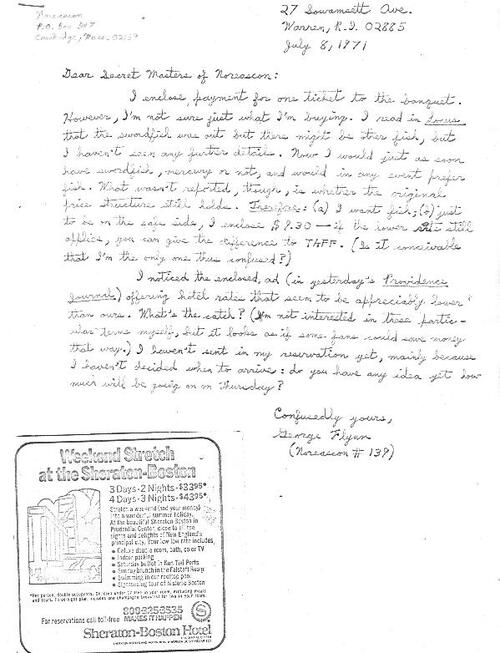 Noreascon
P.O. Box 547
Cambridge, Mass. 02139
27 Sowamsett Ave.
Warren, R.I. 02885
July 8, 1971
Dear Secret Masters of Noreascon:
I enclose payment for one ticket to the banquet.
However, I'm not sure just what I'm buying. I read in Locus
that the swordfish was out but there might be other fish, but
I haven't seen any further details. Now I would just as soon
have swordfish, mercury or not, and would in any event prefer
fish. What wasn't reported, though, is whether the original
price structure still holds. Therefore: (a) I want fish; (b) just
to be on the safe side, I enclose $9.30 — if the lower still
applies, you can give the difference to TAFF. (Is it conceivable
that I'm the only one thus confused?)
I noticed the enclosed ad (in yesterday's Providence
Journal) offering hotel rates that seem to be appreciably lower
than ours. What's the catch? (I'm not interested in these partic-
ular terms myself, but it looks as if some fans could save money
that way.) I haven't sent in my reservation yet, mainly because
I haven't decided when to arrive: do you have any idea yet how
much will be going on on Thursday?
Confusedly yours,
George Flynn
(Noreascon # 139)
Weekend Stretch
at the Sheraton-Boston
3 Days • 2 Nights • $33.95*
4 Days • 3 Nights • $43.95*
Stretch a weekend (and your money)
into a wonderful summer holiday.
At the beautiful Sheraton-Boston in
Prudential Center, close to all the
sights and delights of New England's
principal city. Your low low rate includes
• Deluxe double room, bath, color TV
• Indoor parking
• Saturday buffet in Kon Tiki Ports
• Sunday brunch in the Falstaff Room
• Swimming in our rooftop pool
• Sightseeing tour of historic Boston
For reservations call toll-free 800-325-3535
MAKES IT HAPPEN
Sheraton-Boston Hotel